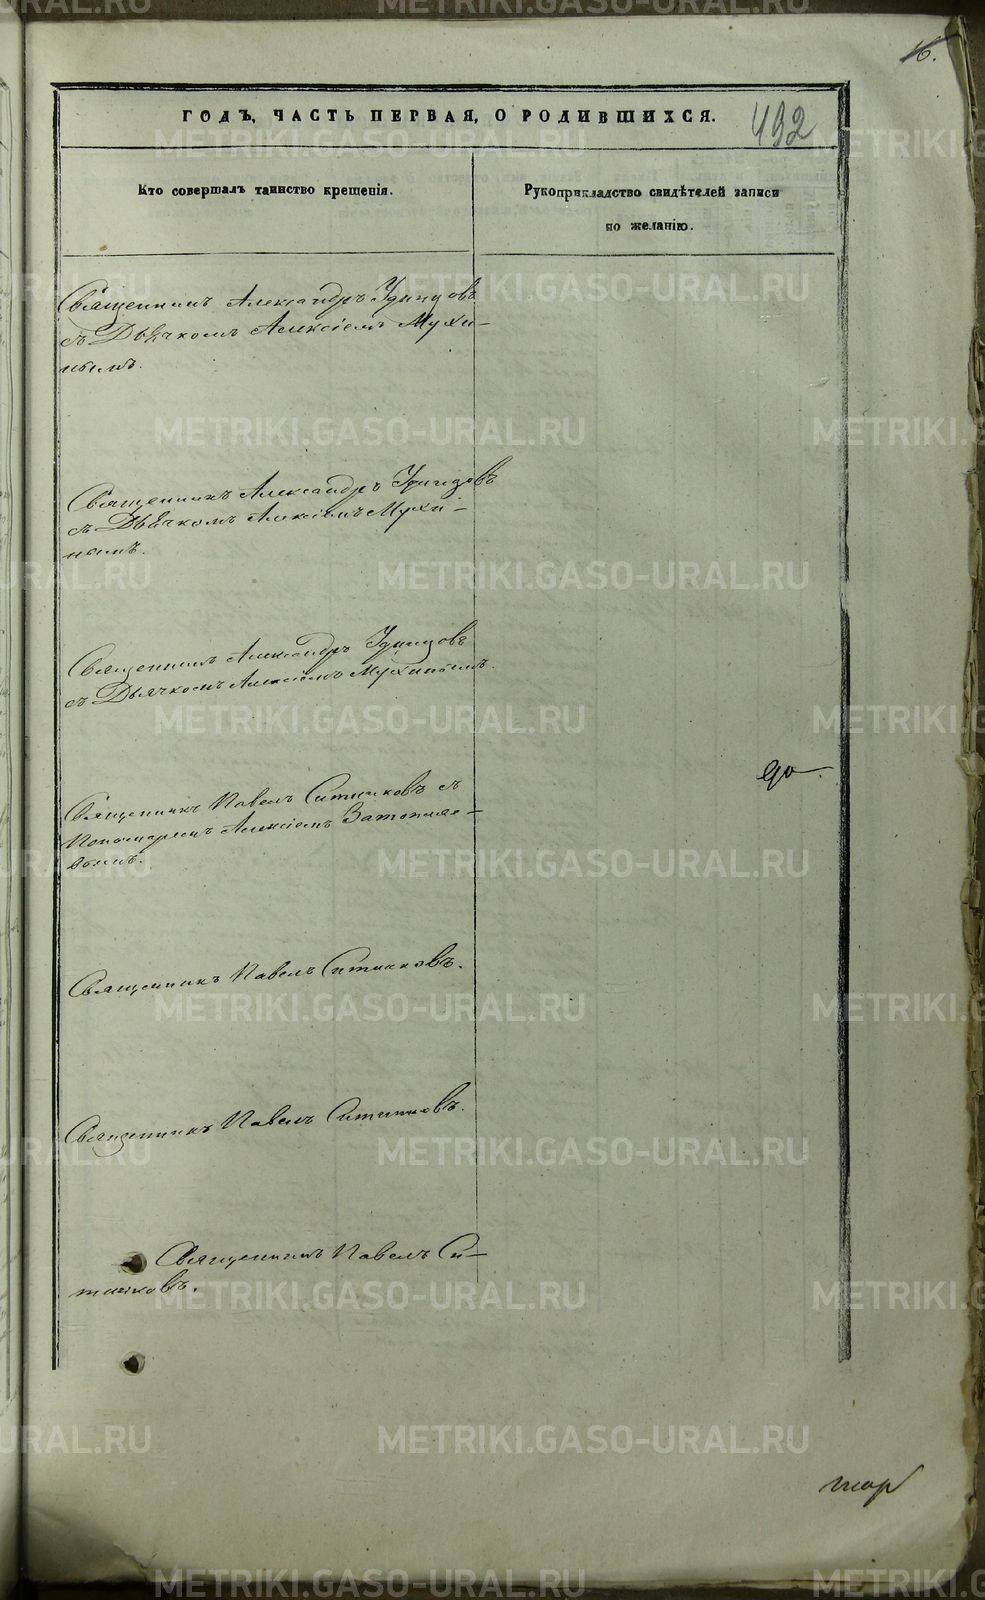 16.
ГОДЪ, ЧАСТЬ ПЕРВАЯ, О РОДИВШИХСЯ.
492
Кто совершалъ таинство крещенія.
Рукоприкладство свидѣтелей записи
по желанію.
Священникъ Александръ Удинцовъ
съ Дьячкомъ Алексіемъ Мухи-
нымъ.
Священникъ Александръ Удинцовъ
съ Дьячкомъ Алексіемъ Мухи-
нымъ.
Священникъ Александръ Удинцовъ
съ Дьячкомъ Алексіемъ Мухинымъ.
Священникъ Павелъ Ситниковъ съ
Пономаремъ Алексіемъ Затопляе-
вымъ.
Священникъ Павелъ Ситниковъ.
Священникъ Павелъ Ситниковъ.
Священникъ Павелъ Си-
тниковъ.
METRIKI.GASO-URAL.RU